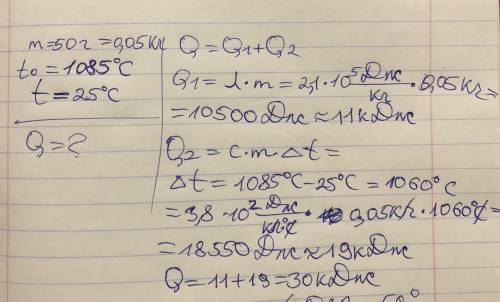 m=50г=0,05кг
t₀=1085°C
t=25°C
Q=?
Q=Q₁+Q₂
Q₁=λ·m=2,1·10⁵ Дж/кг · 0,05кг=
=10500Дж≈11кДж
Q₂=c·m·Δt=
Δt=1085°C-25°C=1060°C
=3,8·10² Дж/кг·°C · 0,05кг·1060°C=
=18550Дж≈19кДж
Q=11+19=30кДж